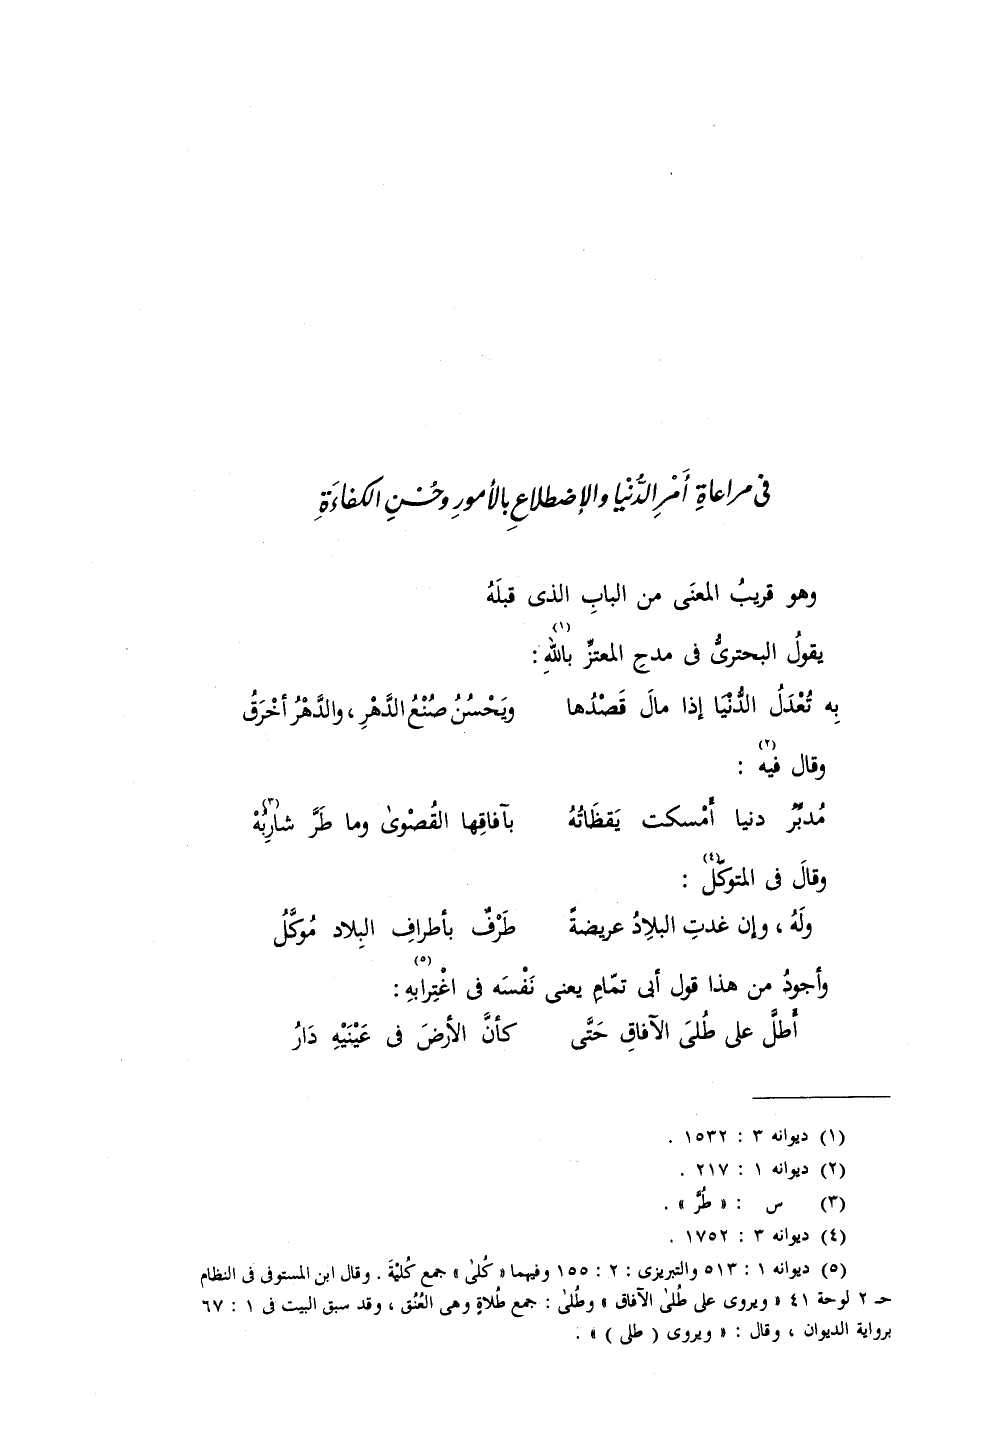 فى مراعاةِ أَمْرِ الدُّنْيا والإضطلاعِ بالأمورِ وحُسْنِ الكفاءَةِ
وهو قريبُ المعنَى من البابِ الذى قبلَهُ
يقولُ البحترىُّ فى مدحِ المعتزِّ باللهِ(١) :
بِه تُعْدَلُ الدُّنْيَا إذا مالَ قَصْدُها ويَحْسُنُ صُنْعُ الدَّهْرِ ، والدَّهْرُ أخْرَقُ
وقال فيه(٢) :
مُدبِّرُ دنيا أَمْسكت يَقظَاتُهُ بآفاقِها القُصْوىٰ وما طَرَّ شارِبُهْ(٣)
وقالَ فى المتوكّل(٤) :
ولَهُ ، وإن غدتِ البلادُ عريضةً طَرْفٌ بأطرافِ البِلاد مُوكَّلُ
وأجودُ من هذا قول أبى تمّامِ يعنى نَفْسَه فى اغْتِرابهِ(٥) :
أَطلَّ على طُلىَ الآفاقِ حَتَّى كأنَّ الأرضَ فى عَيْنَيْهِ دَارُ
(١) ديوانه ٣ : ١٥٣٢ .
(٢) ديوانه ١ : ٢١٧ .
(٣) س : « طُرَّ » .
(٤) ديوانه ٣ : ١٧٥٢ .
(٥) ديوانه ١ : ٥١٣ والتبريزى : ٢ : ١٥٥ وفيهما « كُلىٰ » جمع كُليْةَ . وقال ابن المستوفى فى النظام
حـ ٢ لوحة ٤١ « ويروى على طُلىٰ الآفاق » وطُلىٰ : جمع طُلاةٍ وهى العُنُق ، وقد سبق البيت فى ١ : ٦٧
برواية الديوان ، وقال : « ويروى ( طلى ) » .